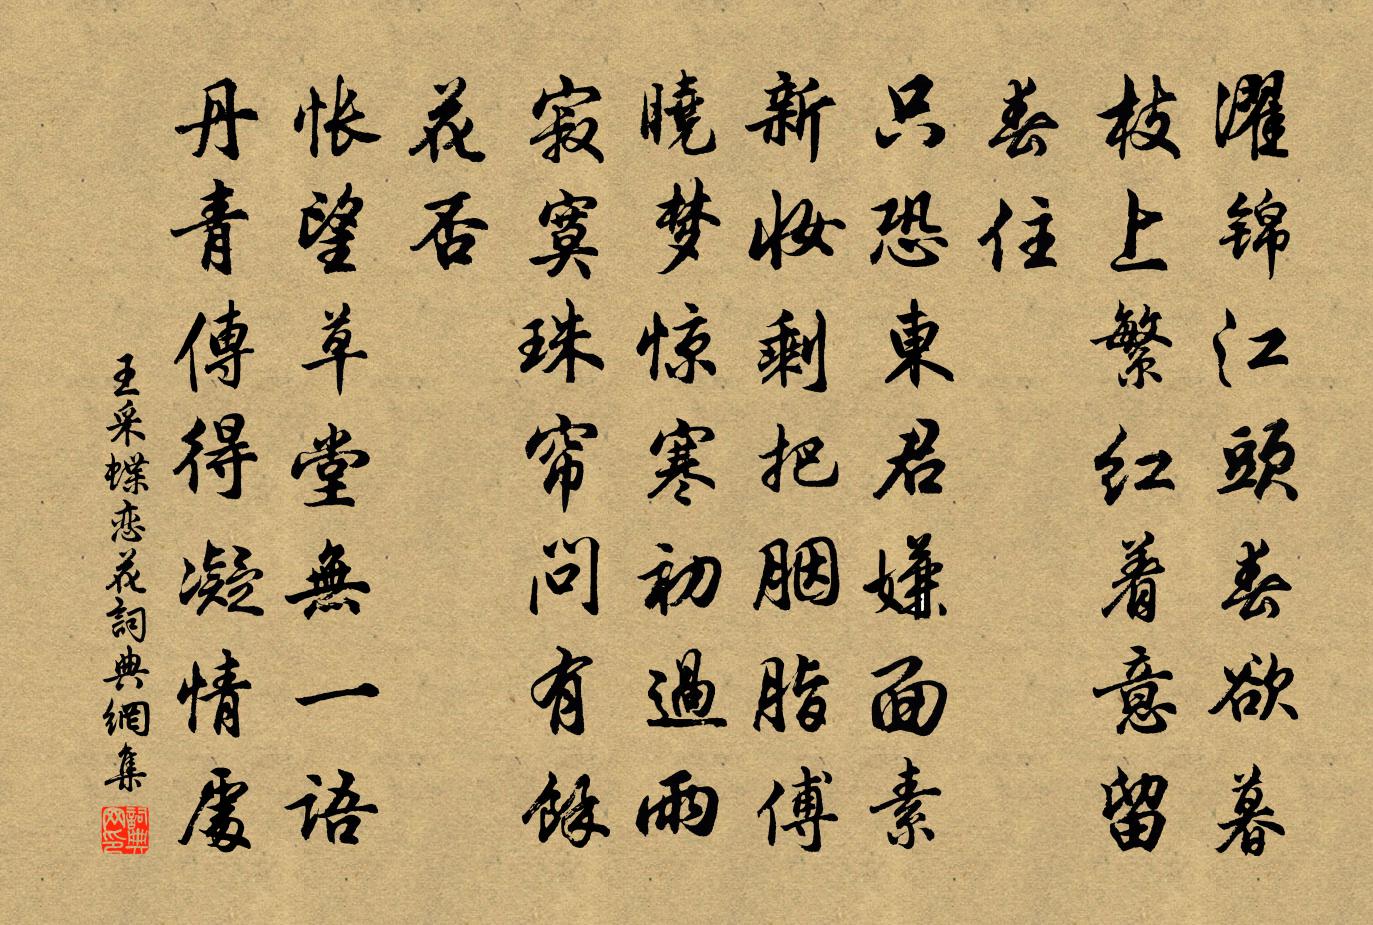 濯锦江頭春欲暮
枝上繁红着意留
春住
只恐東君嫌面素
新妆剩把胭脂傅
曉梦惊寒初過雨
寂寞珠帘问有餘
花否
怅望草堂無一语
丹青傳得凝情處
王采蝶恋花詞典網集
詞典网印